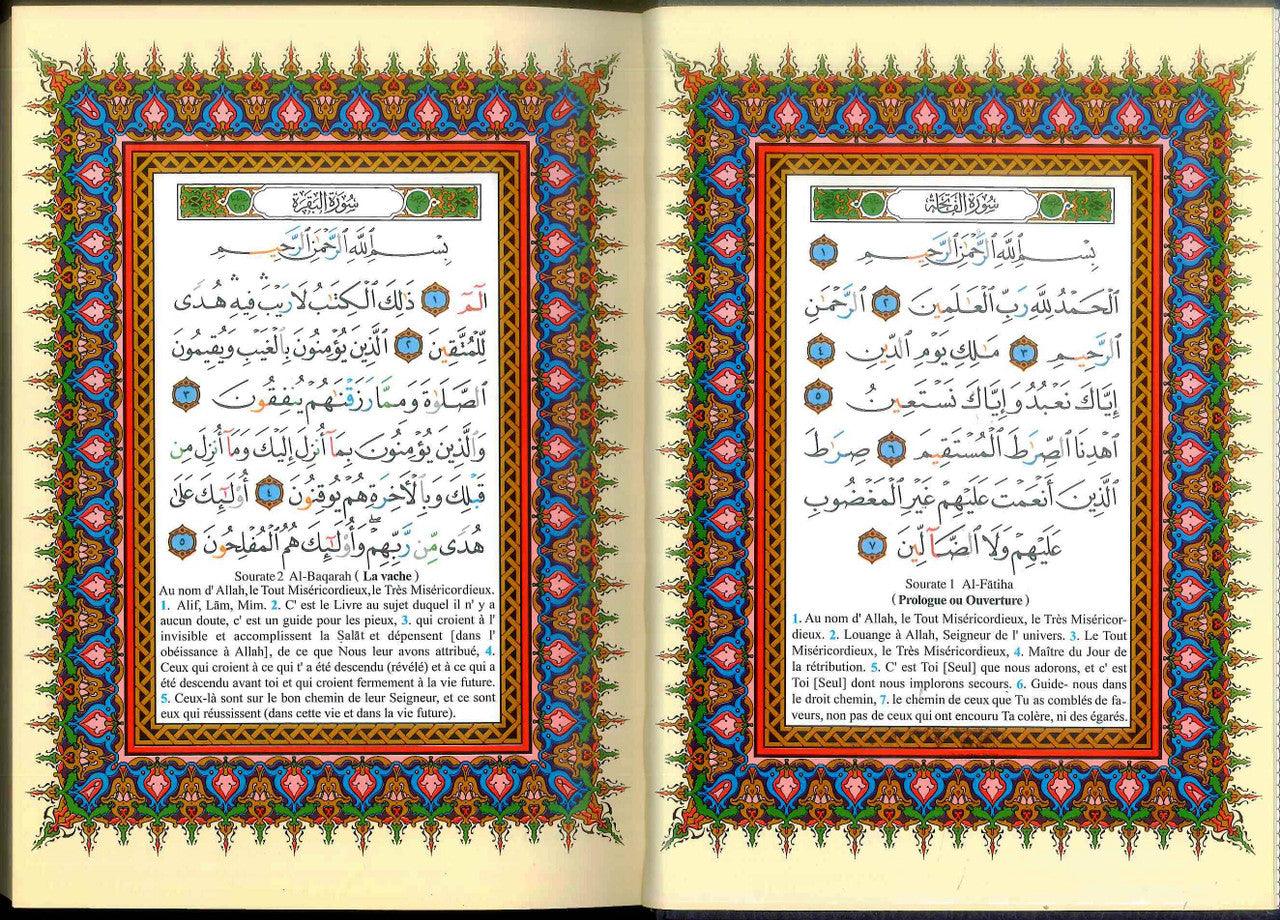 سُورَةُ الفَاتِحَةِ
بِسْمِ اللَّهِ الرَّحْمَٰنِ الرَّحِيمِ ١
الْحَمْدُ لِلَّهِ رَبِّ الْعَالَمِينَ ٢ الرَّحْمَٰنِ
الرَّحِيمِ ٣ مَالِكِ يَوْمِ الدِّينِ ٤
إِيَّاكَ نَعْبُدُ وَإِيَّاكَ نَسْتَعِينُ ٥
اهْدِنَا الصِّرَاطَ الْمُسْتَقِيمَ ٦ صِرَاطَ
الَّذِينَ أَنْعَمْتَ عَلَيْهِمْ غَيْرِ الْمَغْضُوبِ
عَلَيْهِمْ وَلَا الضَّآلِّينَ ٧
Sourate 1 Al-Fātiha
( Prologue ou Ouverture )
1. Au nom d' Allah, le Tout Miséricordieux, le Très Miséricor-
dieux. 2. Louange à Allah, Seigneur de l' univers. 3. Le Tout
Miséricordieux, le Très Miséricordieux, 4. Maître du Jour de
la rétribution. 5. C' est Toi [Seul] que nous adorons, et c' est
Toi [Seul] dont nous implorons secours. 6. Guide- nous dans
le droit chemin, 7. le chemin de ceux que Tu as comblés de fa-
veurs, non pas de ceux qui ont encouru Ta colère, ni des égarés.
سُورَةُ البَقَرَةِ
بِسْمِ اللَّهِ الرَّحْمَٰنِ الرَّحِيمِ
الٓمٓ ١ ذَٰلِكَ الْكِتَابُ لَا رَيْبَ ۛ فِيهِ ۛ هُدًى
لِّلْمُتَّقِينَ ٢ الَّذِينَ يُؤْمِنُونَ بِالْغَيْبِ وَيُقِيمُونَ
الصَّلَوٰةَ وَمِمَّا رَزَقْنَاهُمْ يُنفِقُونَ ٣
وَالَّذِينَ يُؤْمِنُونَ بِمَآ أُنزِلَ إِلَيْكَ وَمَآ أُنزِلَ مِن
قَبْلِكَ وَبِالْآخِرَةِ هُمْ يُوقِنُونَ ٤ أُوْلَٰٓئِكَ عَلَىٰ
هُدًى مِّن رَّبِّهِمْ ۖ وَأُوْلَٰٓئِكَ هُمُ الْمُفْلِحُونَ ٥
Sourate 2 Al-Baqarah ( La vache )
Au nom d' Allah, le Tout Miséricordieux, le Très Miséricordieux.
1. Alif, Lām, Mim. 2. C' est le Livre au sujet duquel il n' y a
aucun doute, c' est un guide pour les pieux, 3. qui croient à l'
invisible et accomplissent la Ṣalāt et dépensent [dans l'
obéissance à Allah], de ce que Nous leur avons attribué, 4.
Ceux qui croient à ce qui t' a été descendu (révélé) et à ce qui a
été descendu avant toi et qui croient fermement à la vie future.
5. Ceux-là sont sur le bon chemin de leur Seigneur, et ce sont
eux qui réussissent (dans cette vie et dans la vie future).